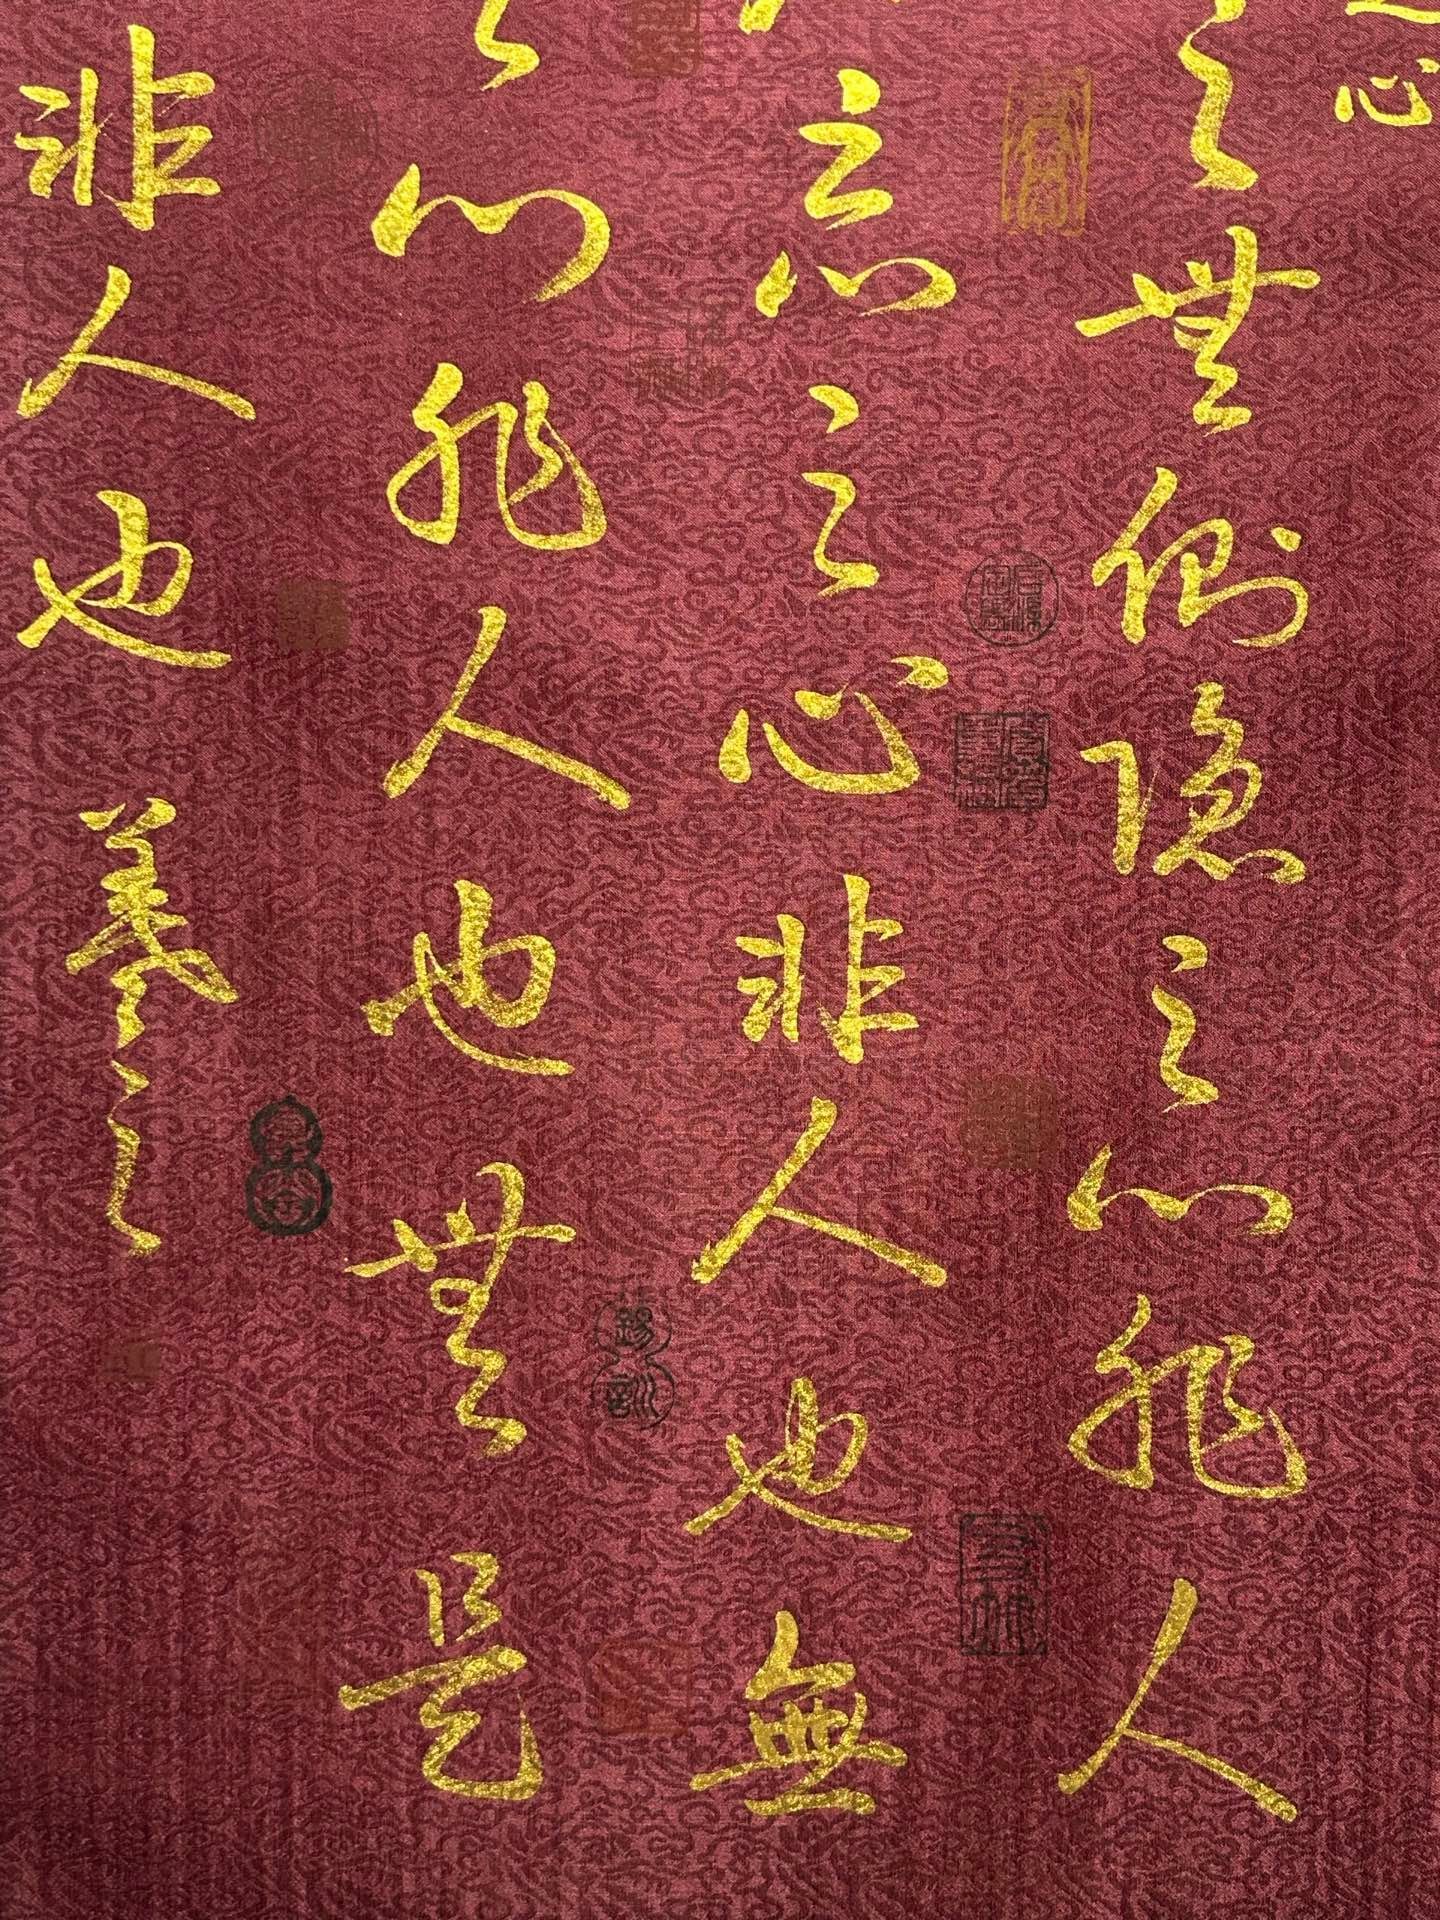 心
之無惻隱之心非人
惡之心非人也無
之心非人也無是
非人也 羲之